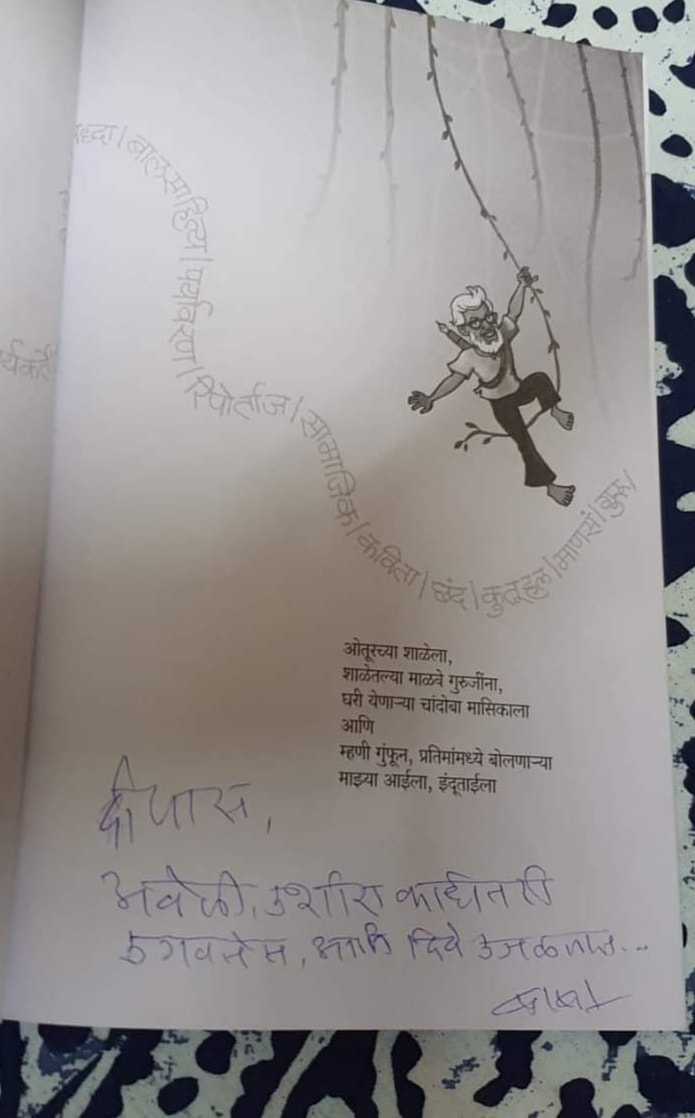 श्रद्धा | बालसाहित्य | पर्यावरण | रिपोर्ताज | सामाजिक | कविता | छंद | कुतूहल | माणसं | शुरू
ओतूरच्या शाळेला,
शाळेतल्या माळवे गुरुजींना,
घरी येणाऱ्या चांदोबा मासिकाला
आणि
म्हणी गुंफून, प्रतिमांमध्ये बोलणाऱ्या
माझ्या आईला, इंदूताईला
दीपास,
अवेळी, उशीरा काहीतरी
उगवलेस, आणि दिवे उजळले...
बाबा